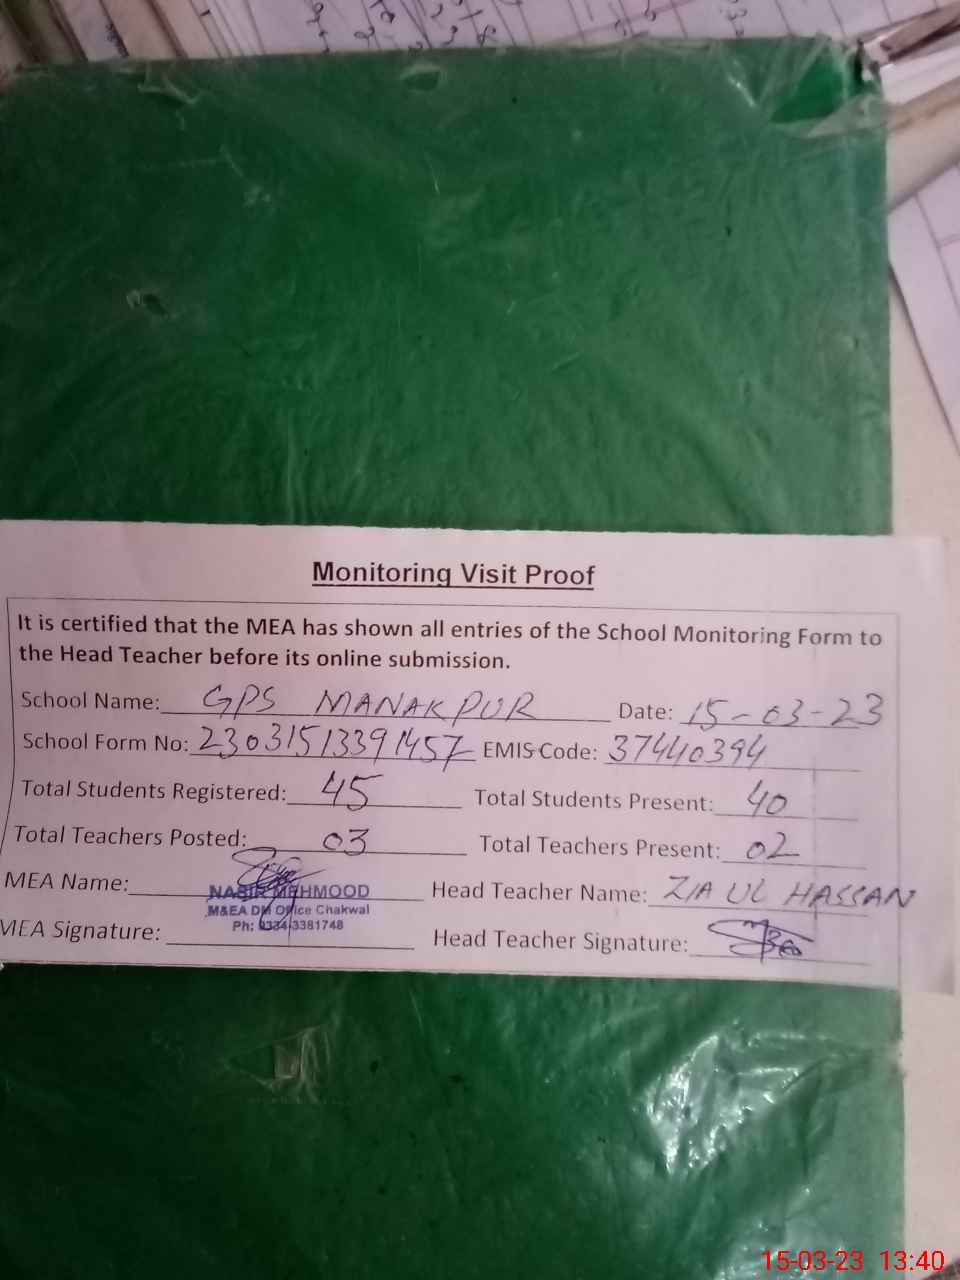 Monitoring Visit Proof
It is certified that the MEA has shown all entries of the School Monitoring Form to
the Head Teacher before its online submission.
School Name: GPS MANAKPUR Date: 15-03-23
School Form No: 23031513391457 EMIS Code: 37440394
Total Students Registered: 45 Total Students Present: 40
Total Teachers Posted: 03 Total Teachers Present: 02
MEA Name: NASIR MEHMOOD Head Teacher Name: ZIA UL HASSAN
M&EA DM Office Chakwal
Ph: 0334-3381748
MEA Signature: Head Teacher Signature:
15-03-23 13:40